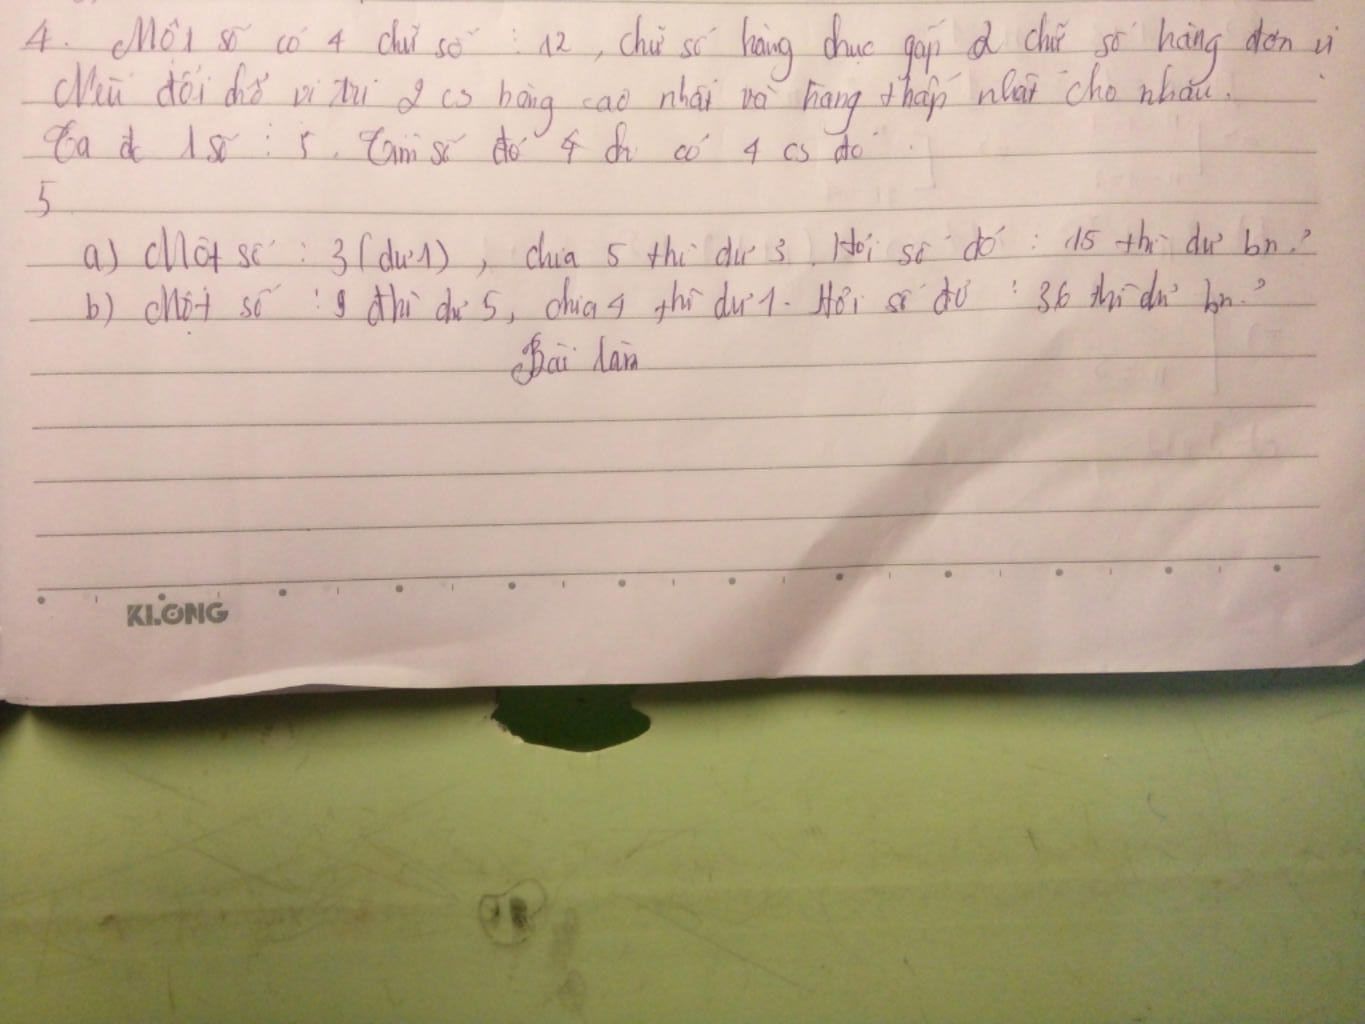 4. Một số có 4 chữ số : 12, chữ số hàng chục gấp 2 chữ số hàng đơn vị
Nếu đổi chỗ vị trí 2 cs hàng cao nhất và hàng thấp nhất cho nhau.
Ta đc 1 số : 5. Tìm số đó có 4 cs đó.
5
a) Một số : 3 (dư 1), chia 5 thì dư 3. Hỏi số đó : 15 thì dư bn?
b) Một số : 9 thì dư 5, chia 4 thì dư 1. Hỏi số đó : 36 thì dư bn?
Bài làm
KLONG